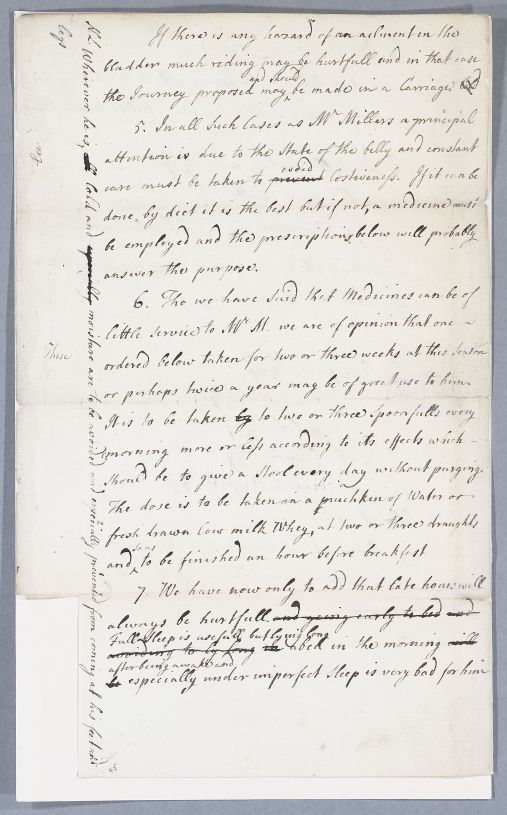 If there is any hazard of an ailment in the
bladder much riding may be hurtfull and in that case
and should
the Journey proposed may be made in a Carriage
5. In all Such Cases as Mr Millers a principal
attention is due to the State of the belly and constant
avoid
care must be taken to prevent Costiveness. If it can be
done by diet it is the best but if not, a medicine must
be employed and the prescriptions below will probably
answer the purpose.
6. Tho we have Said that Medicines can be of
little Service to Mr M. we are of opinion that one
ordered below taken for two or three weeks at this Season
or perhaps twice a year may be of great use to him.
It is to be taken by to two or three Spoonfulls every
morning more or less according to its effects which
Should be to give a Stool every day without purging.
The dose is to be taken in a mutchkin of Water or
fresh drawn Cow milk Whey, at two or three draughts
so as
and to be finished an hour before breakfast
7. We have now only to add that late hours will
always be hurtfull and going early to bed and
Full Sleep is usefull but lying long
according to ly long in abed in the morning will
after being awake and
be especially under imperfect Sleep is very bad for him
Nb. Wherever he is, Cold and especially moisture are to be avoided and especially prevented from coming at his feet and
legs
These